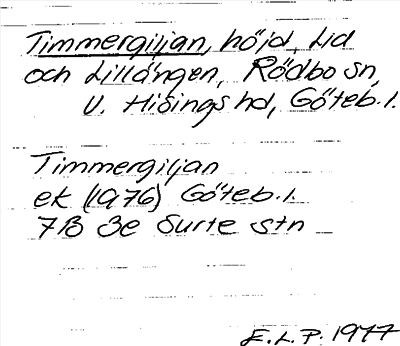 Timmergiljan, höjd, Lid
och Lillängen, Rödbo sn,
V. Hisings hd, Göteb. l.
Timmergiljan
ek (1976) Göteb. l.
7B 3e Surte stn
E.L.P. 1977